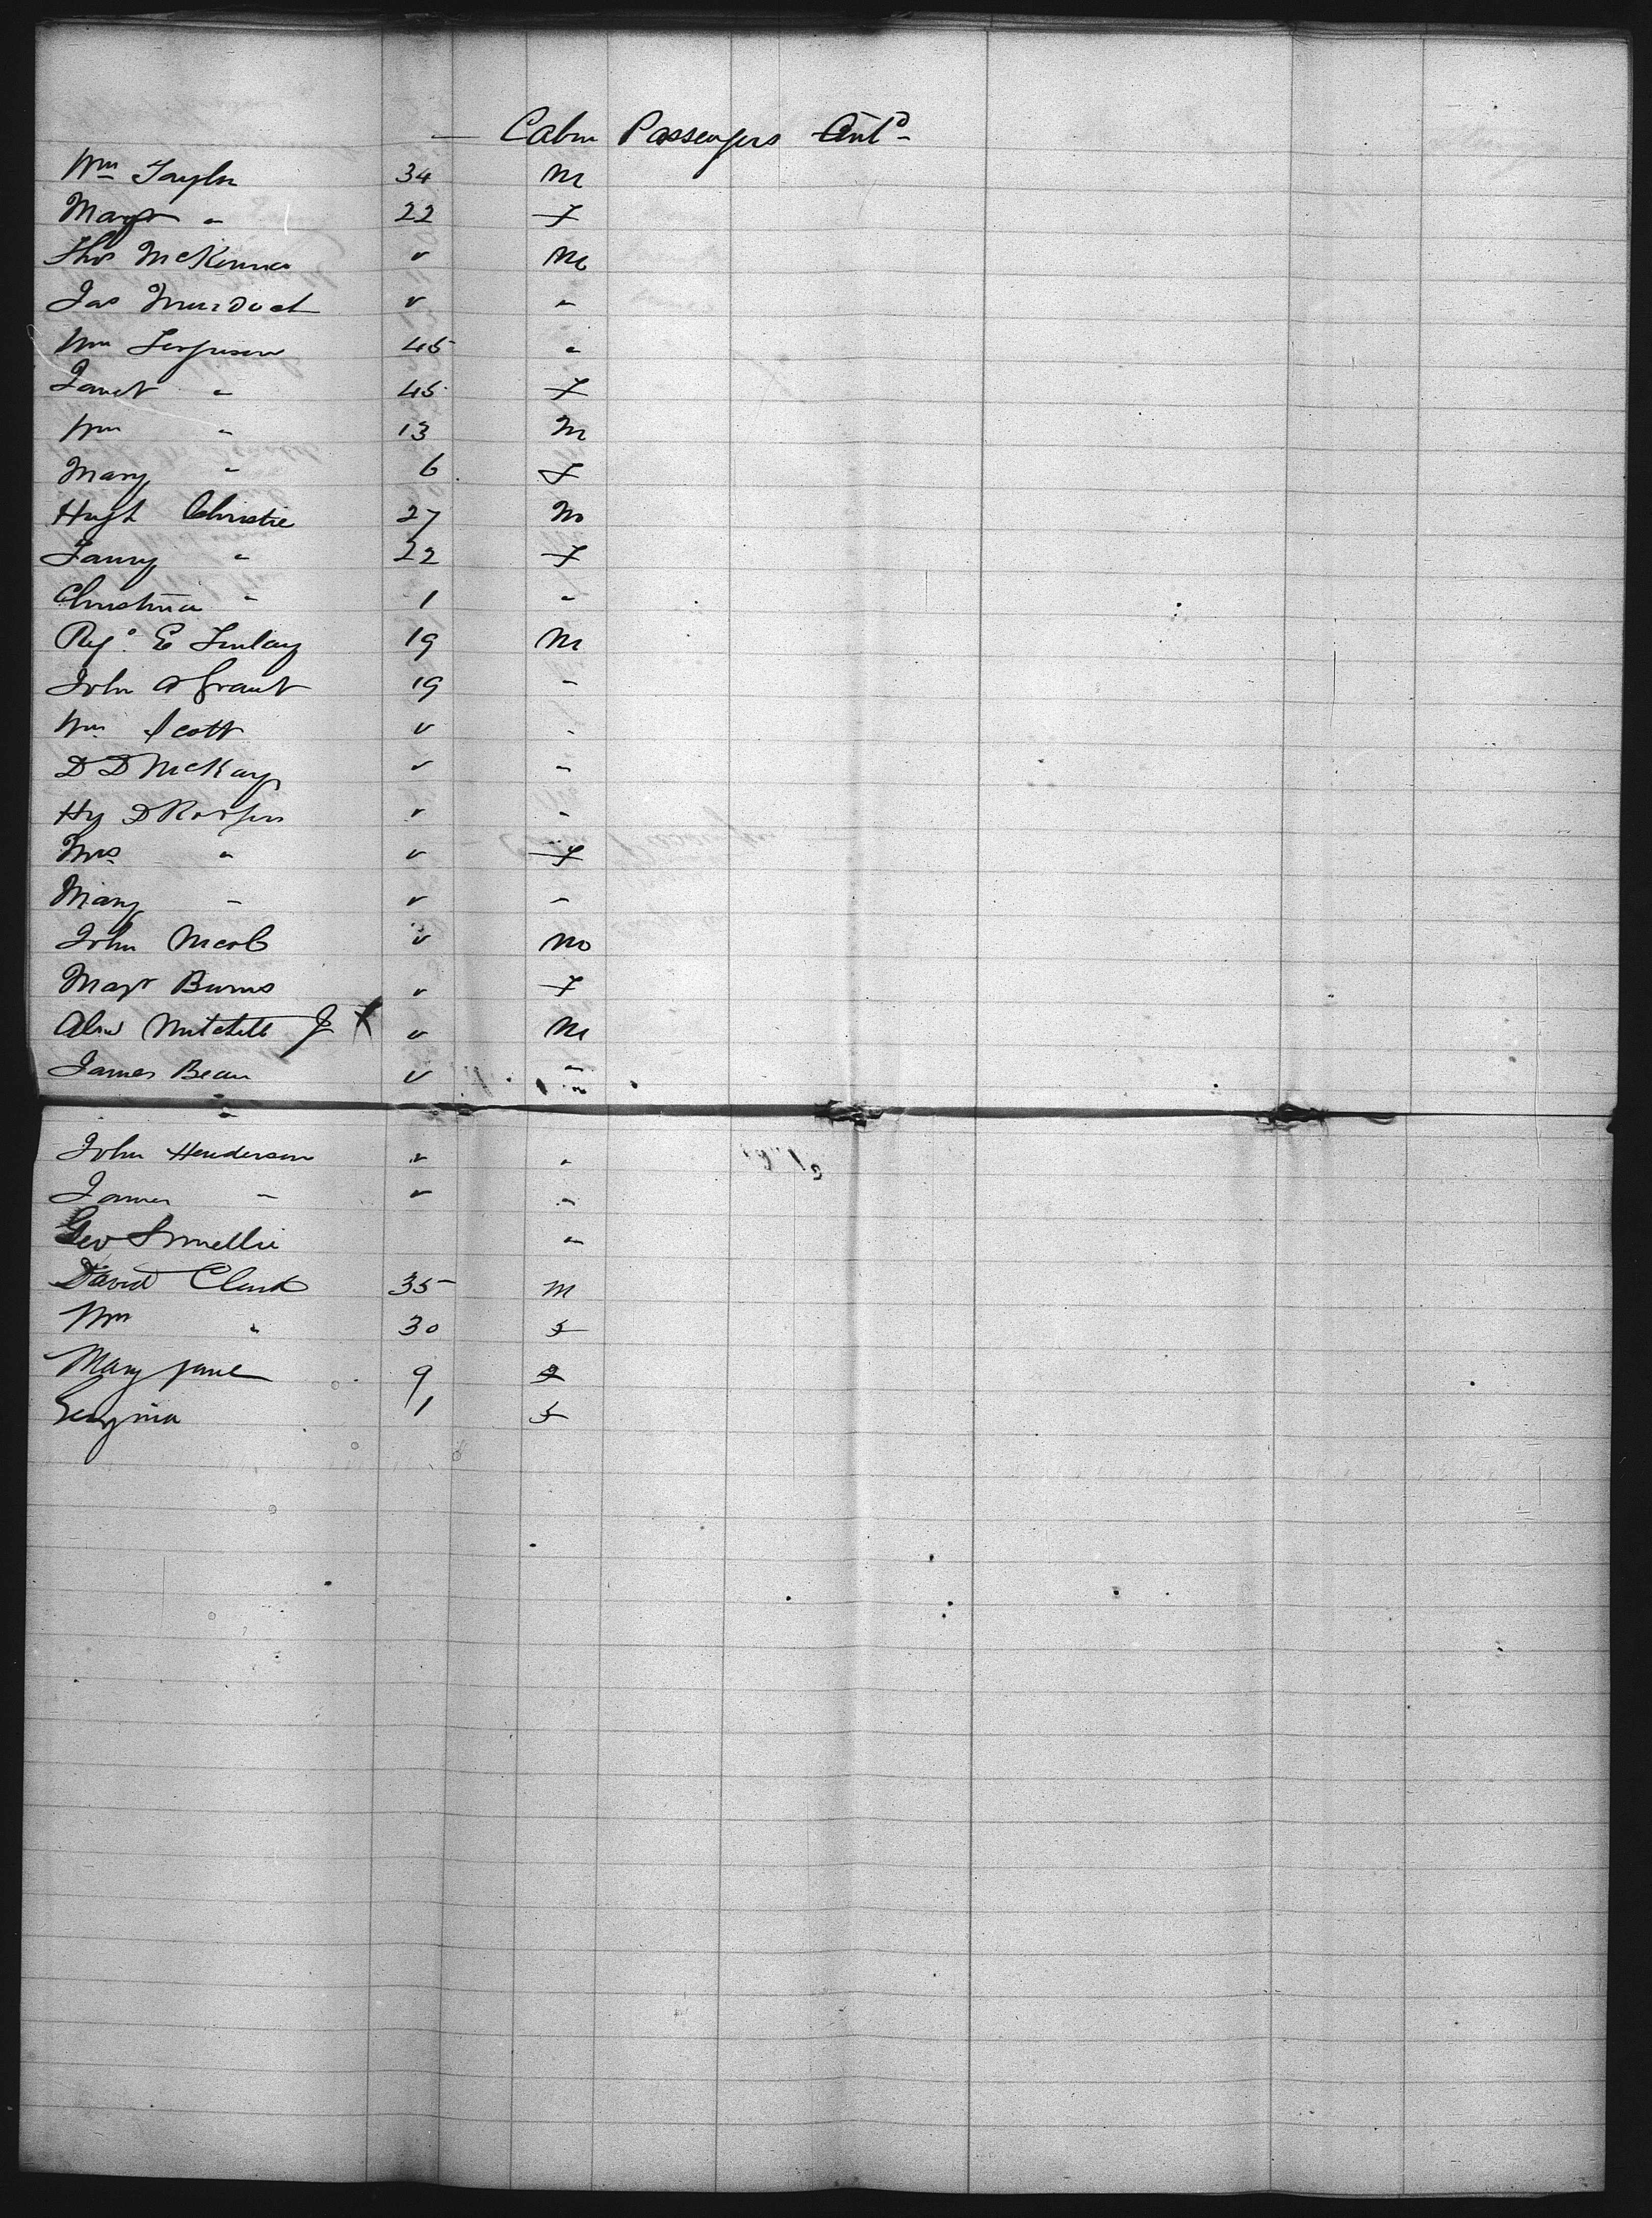 Cabin Passengers Contd
Wm Taylor 34 M
Margt " 22 F
Thos McKinna v M
Jas Murdoch v "
Wm Ferguson 45 "
Janet " 45 F
Wm " 13 M
Mary " 6 F
Hugh Christie 27 M
Fanny " 22 F
Christina " 1 "
Regd E Finlay 19 M
John A Grant 19 "
Wm Scott v "
D D McKay v "
Hy D Rodgers v "
Mrs " v F
Mary " v "
John Nicol v M
Magt Burns v F
Alexr Mitchell Jr X v M
James Bean v "
John Henderson v "
James " v "
Geo Smellie "
David Clark 35 M
Wm " 30 F
Mary Jane 9 F
Georgina 1 F